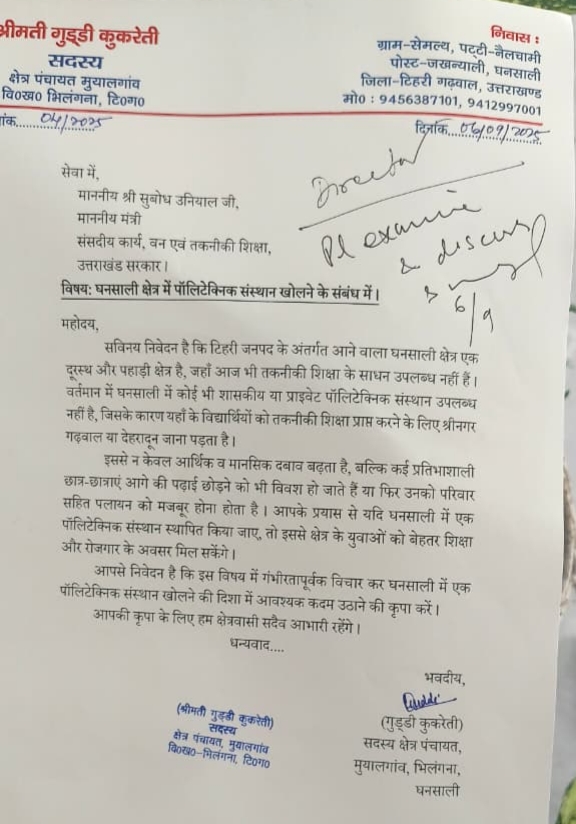 श्रीमती गुड्डी कुकरेती
सदस्य
क्षेत्र पंचायत मुयालगांव
वि०ख० भिलंगना, टि०ग०
निवास :
ग्राम-सेमल्थ, पट्टी-नैलचामी
पोस्ट-जखन्याली, घनसाली
जिला-टिहरी गढ़वाल, उत्तराखण्ड
मो० : 9456387101, 9412997001
04/2025
दिनांक 06/09/2025
Director
Pl examine
& discuss
6/9
सेवा में,
माननीय श्री सुबोध उनियाल जी,
माननीय मंत्री
संसदीय कार्य, वन एवं तकनीकी शिक्षा,
उत्तराखंड सरकार।
विषय: घनसाली क्षेत्र में पॉलिटेक्निक संस्थान खोलने के संबंध में।
महोदय,
सविनय निवेदन है कि टिहरी जनपद के अंतर्गत आने वाला घनसाली क्षेत्र एक
दूरस्थ और पहाड़ी क्षेत्र है, जहाँ आज भी तकनीकी शिक्षा के साधन उपलब्ध नहीं हैं।
वर्तमान में घनसाली में कोई भी शासकीय या प्राइवेट पॉलिटेक्निक संस्थान उपलब्ध
नहीं है, जिसके कारण यहाँ के विद्यार्थियों को तकनीकी शिक्षा प्राप्त करने के लिए श्रीनगर
गढ़वाल या देहरादून जाना पड़ता है।
इससे न केवल आर्थिक व मानसिक दबाव बढ़ता है, बल्कि कई प्रतिभाशाली
छात्र-छात्राएं आगे की पढ़ाई छोड़ने को भी विवश हो जाते हैं या फिर उनको परिवार
सहित पलायन को मजबूर होना होता है। आपके प्रयास से यदि घनसाली में एक
पॉलिटेक्निक संस्थान स्थापित किया जाए, तो इससे क्षेत्र के युवाओं को बेहतर शिक्षा
और रोजगार के अवसर मिल सकेंगे।
आपसे निवेदन है कि इस विषय में गंभीरतापूर्वक विचार कर घनसाली में एक
पॉलिटेक्निक संस्थान खोलने की दिशा में आवश्यक कदम उठाने की कृपा करें।
आपकी कृपा के लिए हम क्षेत्रवासी सदैव आभारी रहेंगे।
धन्यवाद....
भवदीय,
Guddi
(गुड्डी कुकरेती)
सदस्य क्षेत्र पंचायत,
मुयालगांव, भिलंगना,
घनसाली
(श्रीमती गुड्डी कुकरेती)
सदस्य
क्षेत्र पंचायत, मुयालगांव
वि०ख०-भिलंगना, टि०ग०